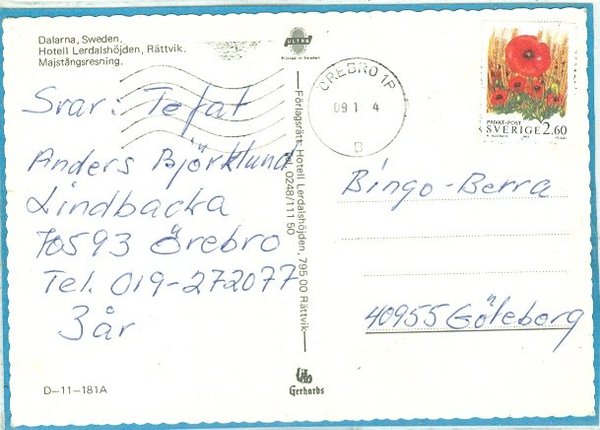 Dalarna, Sweden.
Hotell Lerdalshöjden, Rättvik.
Majstångsresning.
Printed in Sweden
Svar: Tefat
Anders Björklund
Lindbacka
70593 Örebro
Tel. 019-272077
3 år
D-11-181A
Förlagsrätt: Hotell Lerdalshöjden, 795 00 Rättvik
Tel. 0248/111 50
Gerhards
ÖREBRO 1P
09 1 4
B
PRIVAT-POST
SVERIGE 2.60
Bingo-Berra
40955 Göteborg